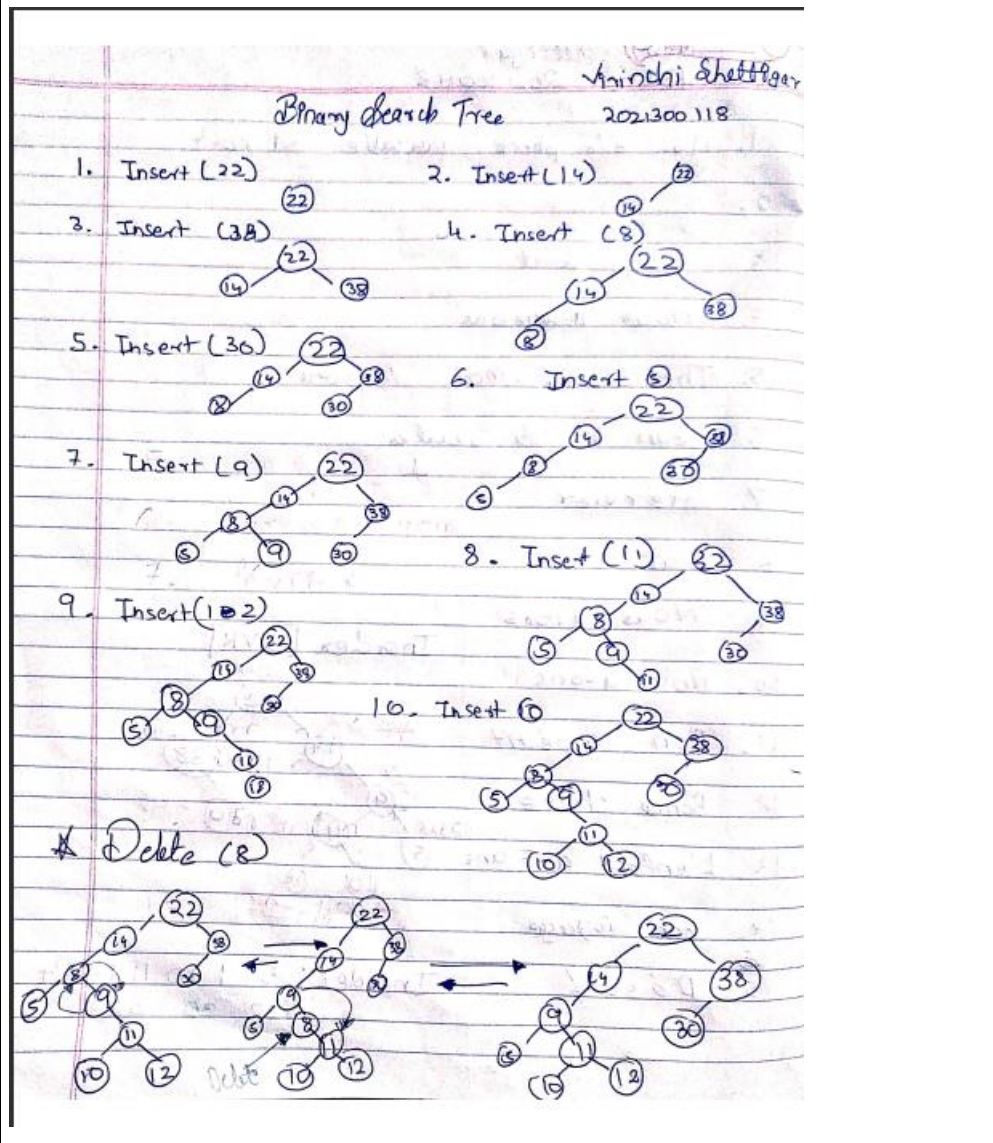 Shettigar
Binary Search Tree 2021300118
1. Insert (22)
22
2. Insert (14)
22
14
3. Insert (38)
22
14 38
4. Insert (8)
22
14
38
8
5. Insert (30)
22
14 38
8 30
6. Insert 5
22
14 38
8 30
5
7. Insert (9)
22
14
38
8
5 9 30
8. Insert (11)
22
14
38
8
5 9 30
11
9. Insert (12)
22
14 38
8 30
5 9
11
10. Insert 10
22
14 38
8 30
5 9
11
10 12
Delete (8)
22
14 38
8 30
5 9
11
10 12
22
14 38
9
5 8
11
10 12
Delete
22
14 38
9 30
5 11
10 12